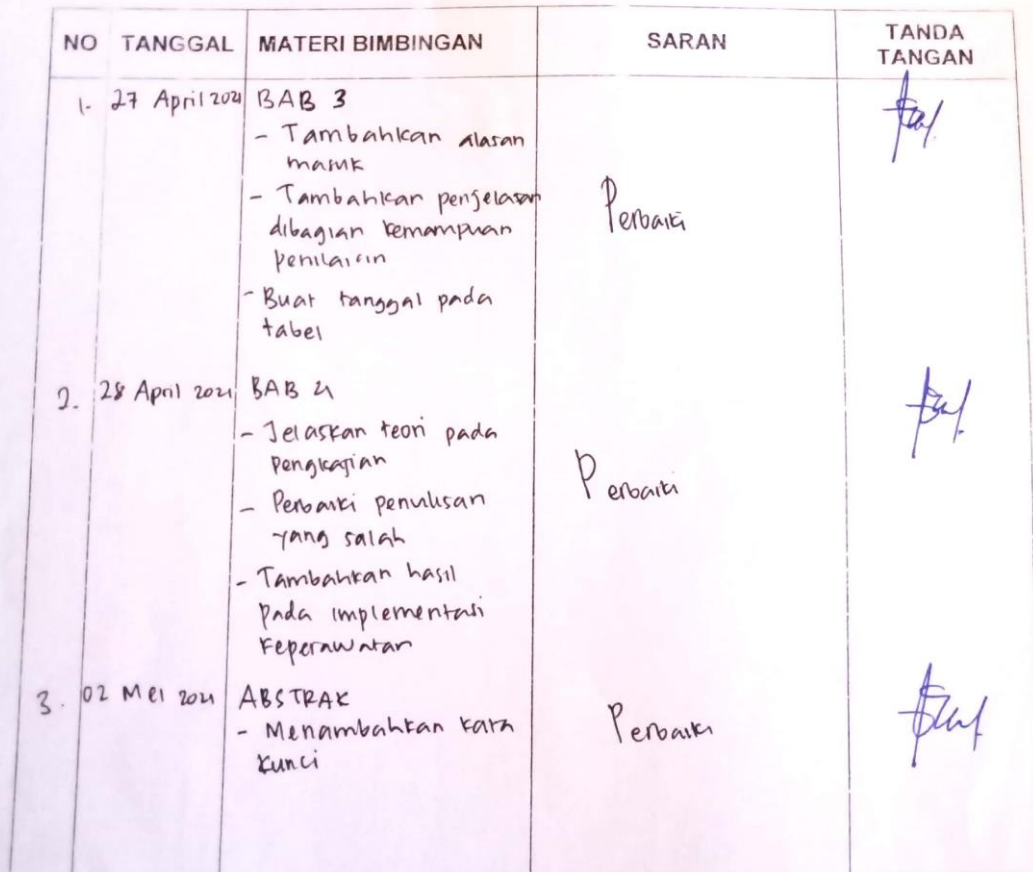 NO TANGGAL MATERI BIMBINGAN SARAN TANDA TANGAN
1. 27 April 2021 BAB 3
- Tambahkan alasan
masuk
- Tambahkan penjelasan
dibagian kemampuan
penilaian
Perbaiki
- Buat tanggal pada
tabel
2. 28 April 2021 BAB 4
- Jelaskan teori pada
Pengkajian
- Perbaiki penulisan
yang salah
Perbaiki
- Tambahkan hasil
pada implementasi
Keperawatan
3. 02 Mei 2021 ABSTRAK
- Menambahkan kata
kunci
Perbaiki